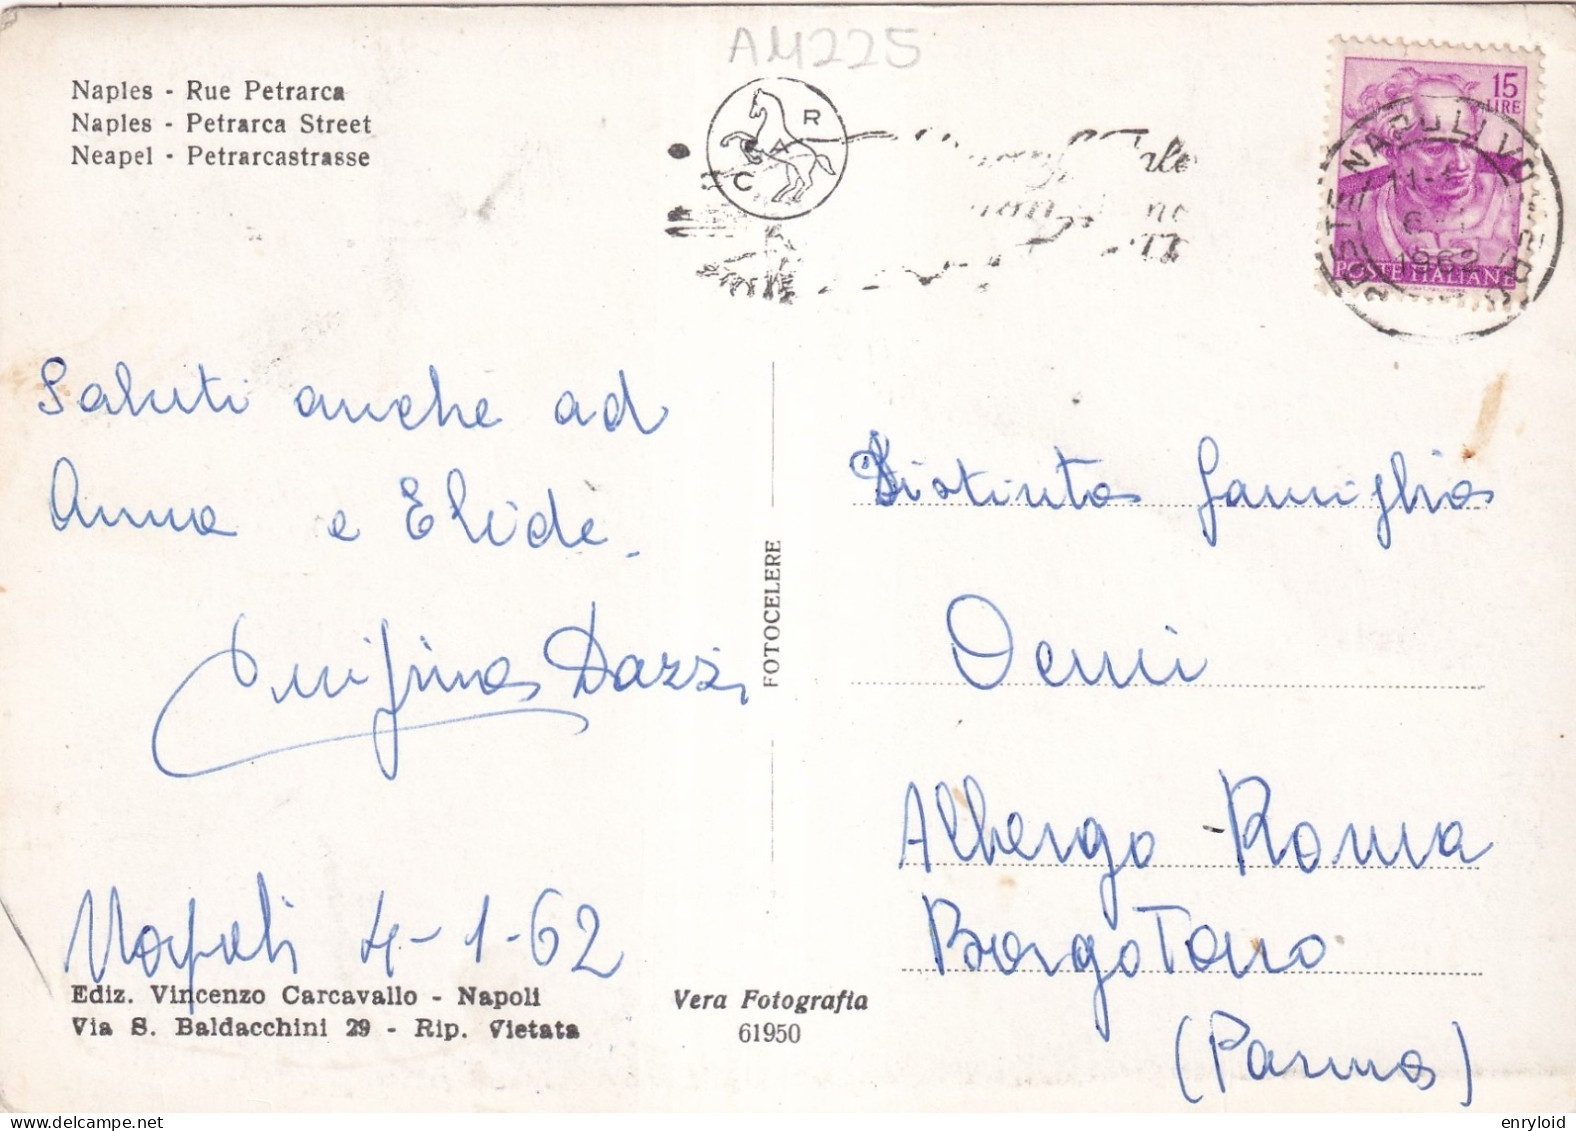 AM225
Naples - Rue Petrarca
Naples - Petrarca Street
Neapel - Petrarcastrasse
C A R
15
LIRE
POSTE ITALIANE
1962
Saluti anche ad
Anna e Elide.
Dazzi
Napoli 4-1-62
Ediz. Vincenzo Carcavallo - Napoli
Via S. Baldacchini 29 - Rip. Vietata
FOTOCELERE
Vera Fotografia
61950
Distinta famiglia
Oemi
Albergo Roma
Borgo Taro
(Parma)
enryloid